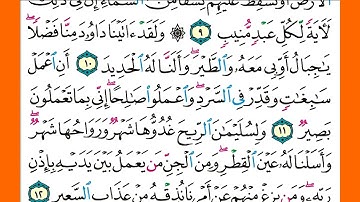 الأرض أو نسقط عليهم كسفا من السماء إن في ذلك
لَأٓيَةً لِّكُلِّ عَبۡدٖ مُّنِيبٖ ٩ ۞ وَلَقَدۡ ءَاتَيۡنَا دَاوُۥدَ مِنَّا فَضۡلٗاۖ
يَٰجِبَالُ أَوِّبِي مَعَهُۥ وَٱلطَّيۡرَۖ وَأَلَنَّا لَهُ ٱلۡحَدِيدَ ١٠ أَنِ ٱعۡمَلۡ
سَٰبِغَٰتٖ وَقَدِّرۡ فِي ٱلسَّرۡدِۖ وَٱعۡمَلُواْ صَٰلِحًاۖ إِنِّي بِمَا تَعۡمَلُونَ
بَصِيرٞ ١١ وَلِسُلَيۡمَٰنَ ٱلرِّيحَ غُدُوُّهَا شَهۡرٞ وَرَوَاحُهَا شَهۡرٞۖ
وَأَسَلۡنَا لَهُۥ عَيۡنَ ٱلۡقِطۡرِۖ وَمِنَ ٱلۡجِنِّ مَن يَعۡمَلُ بَيۡنَ يَدَيۡهِ بِإِذۡنِ
رَبِّهِۦۖ وَمَن يَزِغۡ مِنۡهُمۡ عَنۡ أَمۡرِنَا نُذِقۡهُ مِنۡ عَذَابِ ٱلسَّعِيرِ ١٢